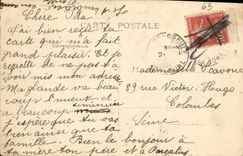 63
Chère Ida
CARTE POSTALE
J'ai bien reçu ta
carte qui m'a fait
grand plaisir. Et je
regrette de ne pas t'a
voir mis mon adresse
Ma glande va beau
coup
a beaucoup diminuée
J'espère que tu vas
bien ainsi que ta
famille. Bien le bonjour à
ta mère ton père et a
Mademoiselle
89 rue Victor Hugo
Colombes
Seine